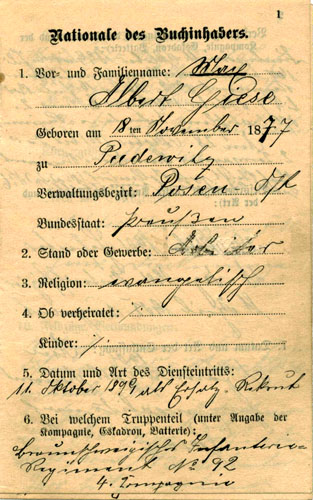 1
Nationale des Buchinhabers.
1. Vor- und Familienname: Max
Albert Giese
Geboren am 18ten November 1877
zu Pudewitz
Verwaltungsbezirk: Posen
Bundesstaat: Preußen
2. Stand oder Gewerbe: Arbeiter
3. Religion: evangelisch
4. Ob verheiratet: /.
Kinder: /.
5. Datum und Art des Diensteintritts:
11. Oktober 1899 als Ersatz-Rekrut
6. Bei welchem Truppenteil (unter Angabe der
Kompagnie, Eskadron, Batterie):
Braunschweigisches Infanterie-
Regiment No 92
4. Compagnie